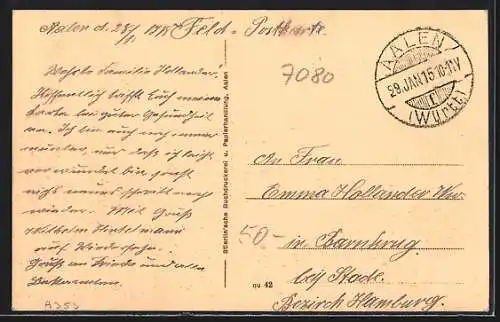 Aalen d. 28/1 1915 Feld = Postkarte
7080
AALEN
29.JAN.15.10-11V
(Württ.)
Werte Familie Hollander!
Hoffentlich trifft Euch meine
Karte bei guter Gesundheit
an. Ich bin auch noch immer
munter, nur daß ich leicht
verwundet bin sonst
nichts neues schreibt mal
wieder. Mit Gruß
Wilhelm
auf Wiedersehn.
Gruß an und alle
Bekannten.
A353
Stierlin'sche Buchdruckerei u. Papierhandlung, Aalen
qu 42
An Frau
Emma Hollander Ww.
50.- in Barnkrug
bei Stade
Bezirk Hamburg.